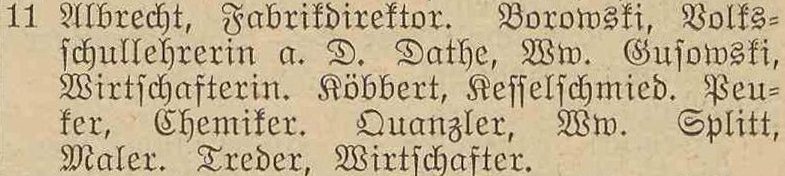 11 Albrecht, Fabrikdirektor. Borowski, Volks-
schullehrerin a. D. Dathe, Ww. Gusowski,
Wirtschafterin. Köbbert, Kesselschmied. Peu-
ker, Chemiker. Quanzler, Ww. Splitt,
Maler. Treder, Wirtschafter.